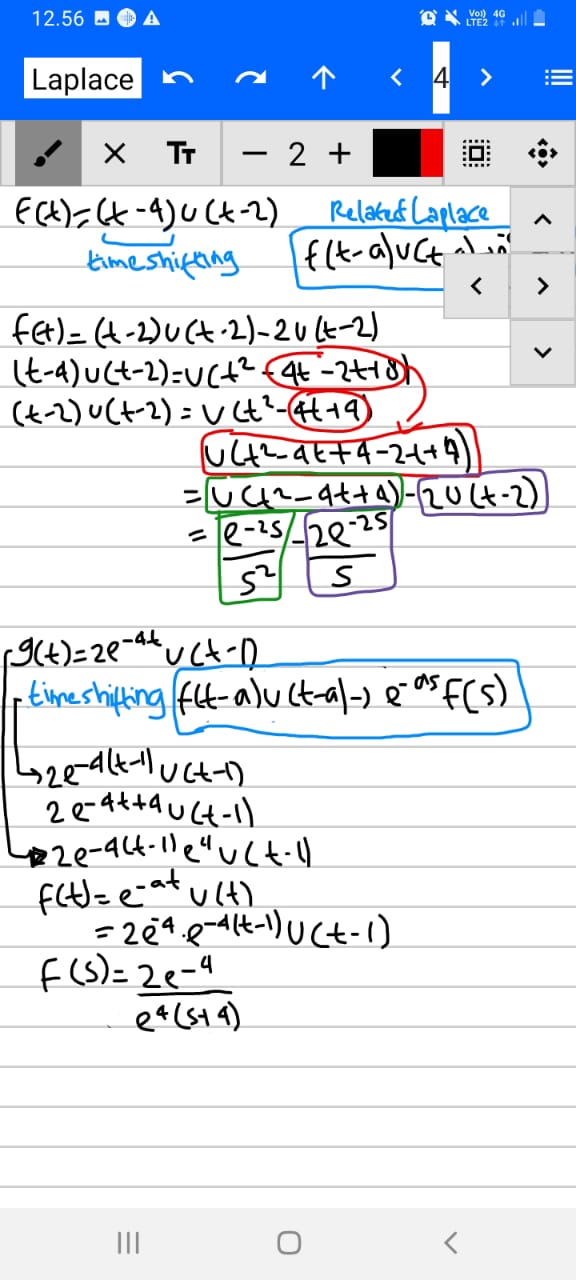 12.56 Vo)) 4G LTE2
Laplace 4
TT − 2 +
f(t)=(t-4)u(t-2) Related Laplace
timeshifting f(t-a)u(t
f(t)=(t-2)u(t-2)-2u(t-2)
(t-4)u(t-2)=u(t²-4t-2t+8)
(t-2)u(t-2)=u(t²-4t+4)
u(t²-4t+4-2t+4)
=u(t²-4t+4)-2u(t-2)
=e^-2s/s² - 2e^-2s/s
g(t)=2e^-4t u(t-1)
timeshifting f(t-a)u(t-a)-> e^-as F(s)
2e^-4(t-1) u(t-1)
2e^-4t+4 u(t-1)
2e^-4(t-1) e^4 u(t-1)
f(t)=e^-at u(t)
=2e^-4.e^-4(t-1) u(t-1)
F(s)=2e^-4
e^4(s+4)